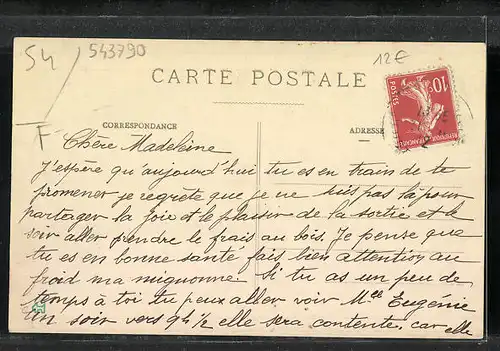 S4
F
543790
12€
CARTE POSTALE
CORRESPONDANCE
ADRESSE
10c
POSTES
Chère Madeleine
J'espère qu'aujourd'hui tu es en train de te
promener je regrète que je ne suis pas là pour
partager la joie et le plaisir de la sortie et le
soir aller prendre le frais au bois. Je pense que
tu es en bonne santé fais bien attention au
froid ma mignonne. Si tu as un peu de
temps à toi tu peux aller voir Melle Eugénie
un soir vers 9h ½ elle sera contente, car elle